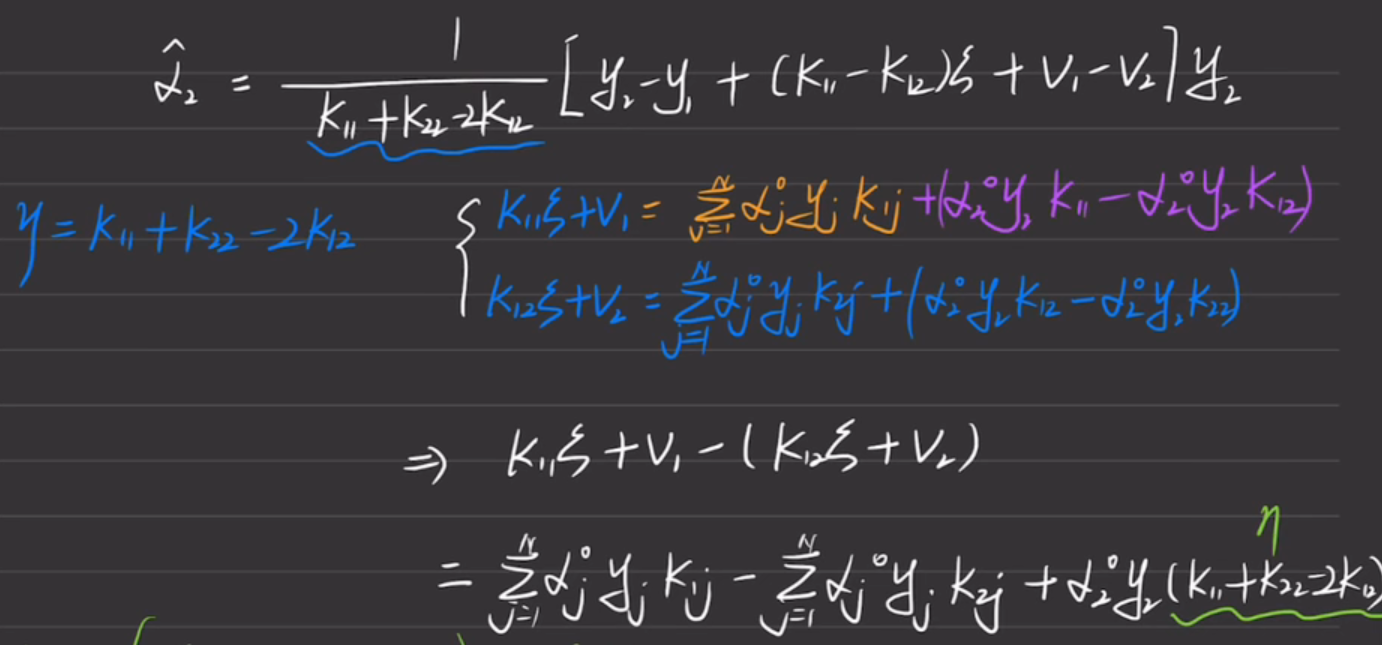 α̂₂ = 1/(K₁₁+K₂₂-2K₁₂) [y₂-y₁ + (K₁₁-K₁₂)ξ + V₁-V₂] y₂
η = K₁₁+K₂₂-2K₁₂
{ K₁₁ξ+V₁ = Σ_{j=1}^{N} αⱼ⁰ yⱼ K₁ⱼ + (α₂⁰y₂ K₁₁ - α₂⁰y₂ K₁₂)
K₁₂ξ+V₂ = Σ_{j=1}^{N} αⱼ⁰ yⱼ K₂ⱼ + (α₂⁰y₂K₁₂ - α₂⁰y₂K₂₂)
⇒ K₁₁ξ + V₁ - (K₁₂ξ + V₂)
η
= Σ_{j=1}^{N} αⱼ⁰ yⱼ K₁ⱼ - Σ_{j=1}^{N} αⱼ⁰ yⱼ K₂ⱼ + α₂⁰y₂ (K₁₁+K₂₂-2K₁₂)